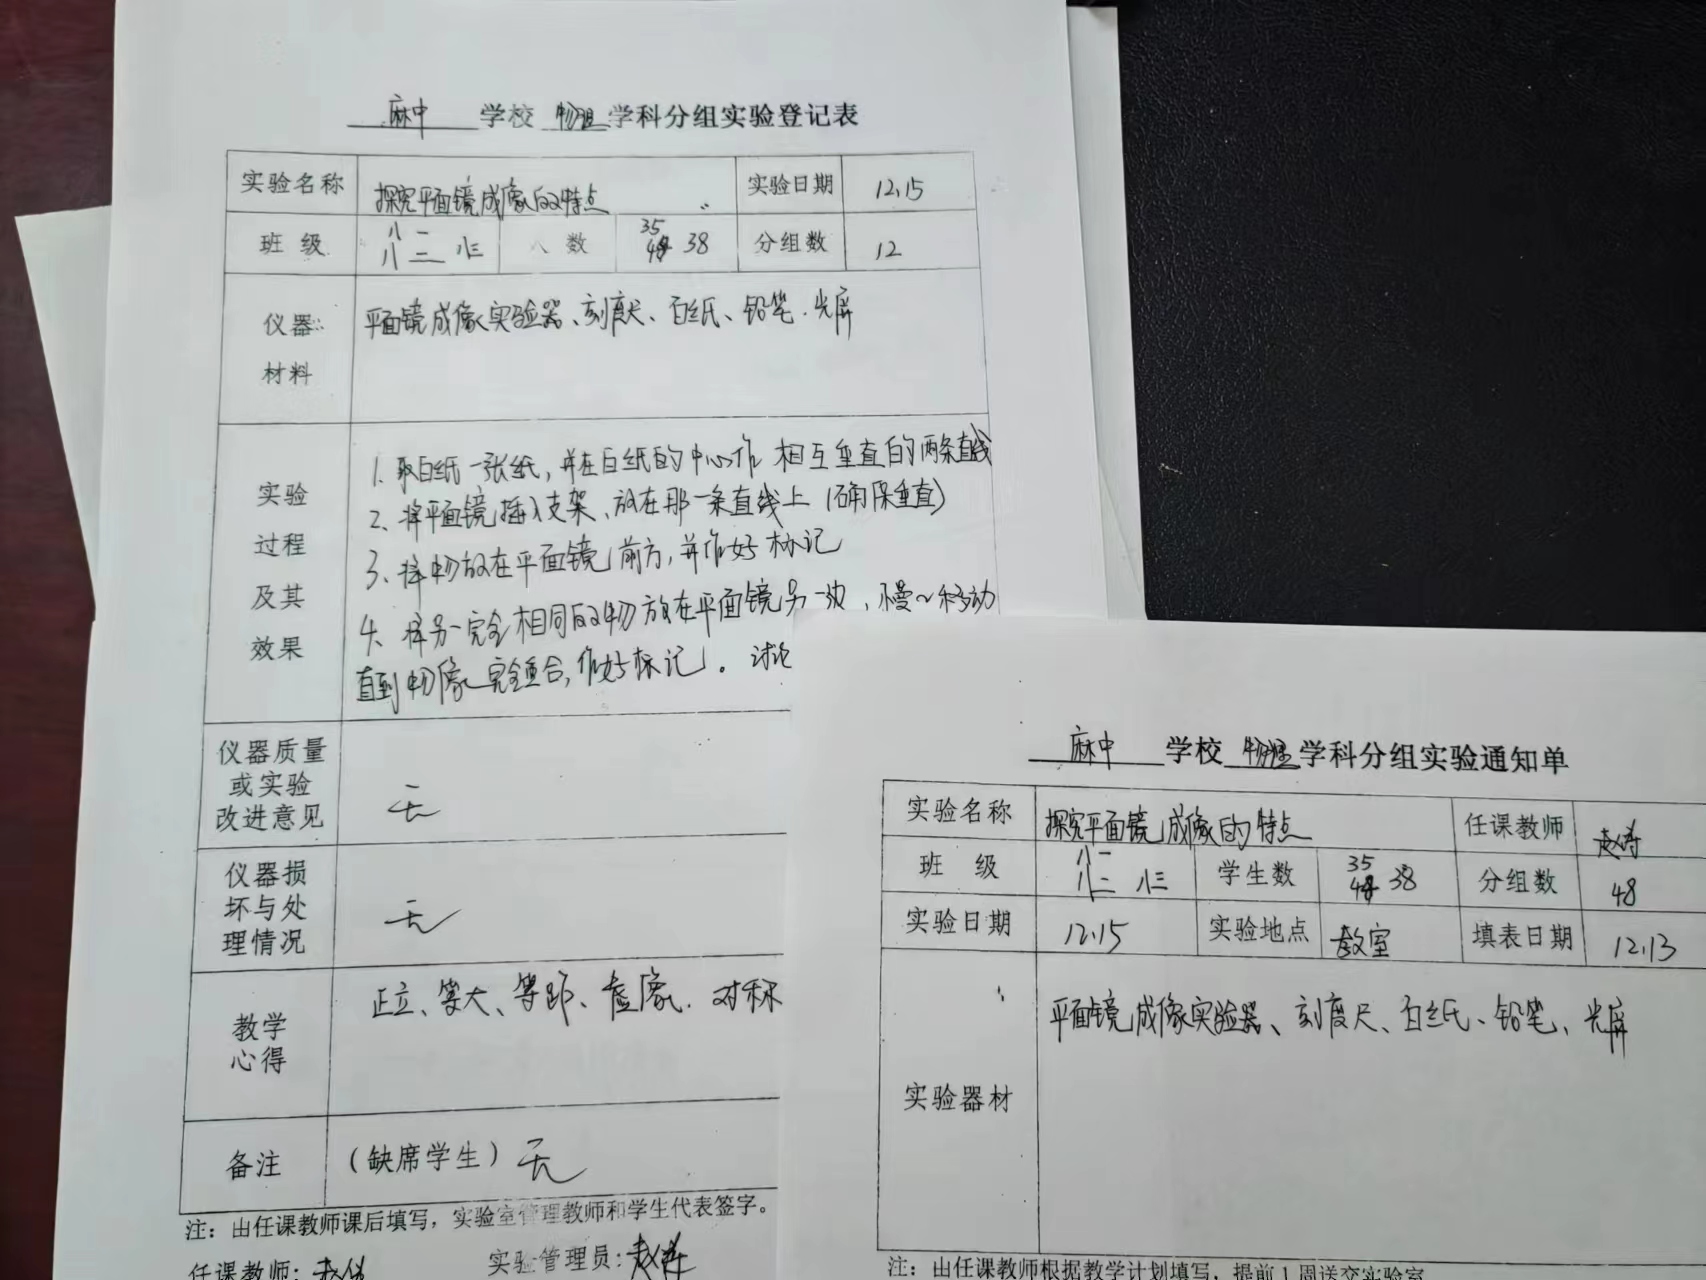 麻中 学校 物理 学科分组实验登记表
实验名称 探究平面镜成像的特点 实验日期 12.15
班 级 八一 八二 八三 人数 35 38 分组数 12
仪器 材料 平面镜成像实验器、刻度尺、白纸、铅笔.光屏
实验 过程 及其 效果
1. 取白纸一张纸,并在白纸的中心作 相互垂直的两条直线
2、将平面镜插入支架、放在那一条直线上 (确保垂直)
3、将物放在平面镜前方,并作好标记
4、将另一完全相同的物放在平面镜另一边,慢~移动
直到物像完全重合,作好标记。讨论
仪器质量 或实验 改进意见 无
仪器损 坏与处 理情况 无
教学 心得 正立、等大、等距、虚像.对称
备注 (缺席学生) 无
注:由任课教师课后填写,实验室管理教师和学生代表签字。
任课教师: 实验管理员:
麻中 学校 物理 学科分组实验通知单
实验名称 探究平面镜成像的特点 任课教师
班 级 八一 八二 八三 学生数 35 38 分组数 48
实验日期 12.15 实验地点 教室 填表日期 12.13
实验器材 平面镜成像实验器、刻度尺、白纸、铅笔、光屏
注:由任课教师根据教学计划填写,提前1周送交实验室